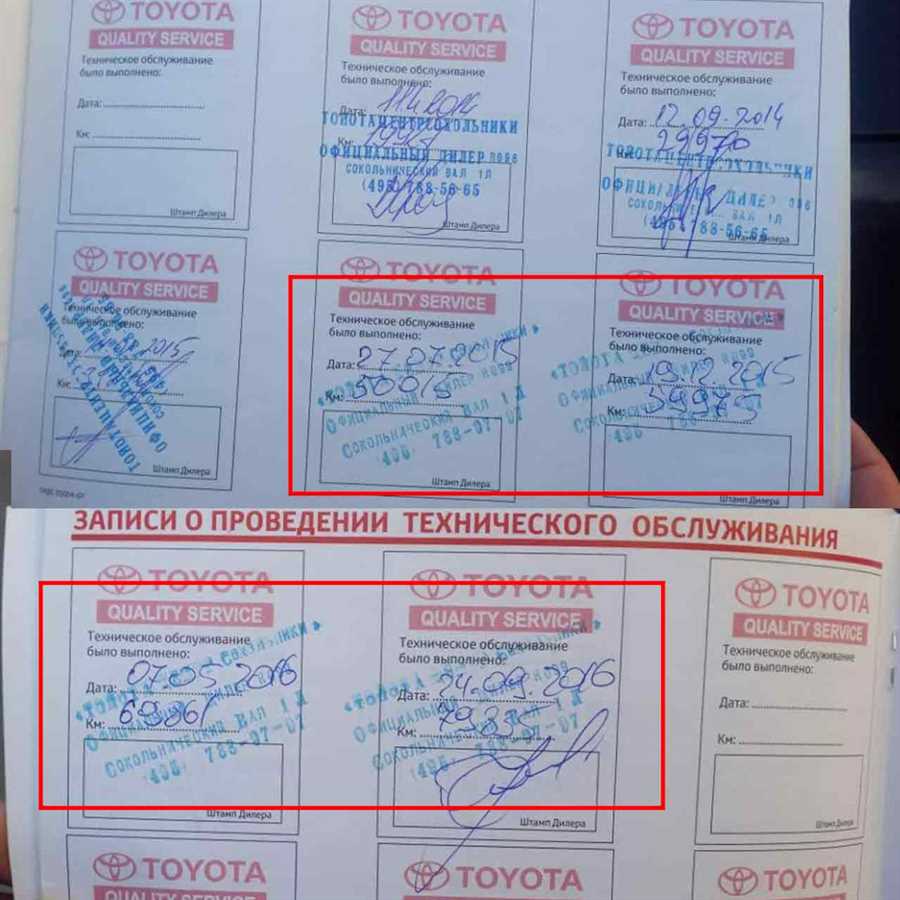 TOYOTA
QUALITY SERVICE
Техническое обслуживание
было выполнено:
Дата:
Км:
Штамп Дилера
TOYOTA
QUALITY SERVICE
Техническое обслуживание
было выполнено:
Дата:
ТОЙОТАЦЕНТРСОКОЛЬНИКИ
Км:
ОФИЦИАЛЬНЫЙ ДИЛЕР
СОКОЛЬНИЧЕСКИЙ ВАЛ 1Л
(495)788-56-65
Штамп Дилера
TOYOTA
QUALITY SERVICE
Техническое обслуживание
было выполнено:
Дата: 12.09.2014
29970
(495) 788-56-65
Штамп Дилера
TOYOTA
QUALITY SERVICE
Техническое обслуживание
было выполнено:
Дата: 2015
Км:
Штамп Дилера
TOYOTA
QUALITY SERVICE
Техническое обслуживание
было выполнено:
Дата: 27.07.2015
Км: 50015
Официальный Дилер
Сокольнический Вал 1 Д
(495) 788-07-07
Штамп Дилера
TOYOTA
QUALITY SERVICE
Техническое обслуживание
было выполнено:
Дата: 19.12.2015
Км: 59975
Штамп Дилера
ЗАПИСИ О ПРОВЕДЕНИИ ТЕХНИЧЕСКОГО ОБСЛУЖИВАНИЯ
TOYOTA
QUALITY SERVICE
Техническое обслуживание
было выполнено:
Дата: 07.05.2016
Км: 69861
Сокольнический Вал 1 Д
(495) 788-07-07
Штамп Дилера
TOYOTA
QUALITY SERVICE
Техническое обслуживание
было выполнено:
Дата: 24.09.2016
Км:
Официальный Дилер
Сокольнический Вал 1 Д
(495) 788-07-07
Штамп Дилера
TOYOTA
QUALITY SERVICE
Техническое обслуживание
было выполнено:
Дата:
Км:
Штамп Дилера
TOYOTA
QUALITY SERVICE
TOYOTA
QUALITY SERVICE
TOYOTA
QUALITY SERVICE